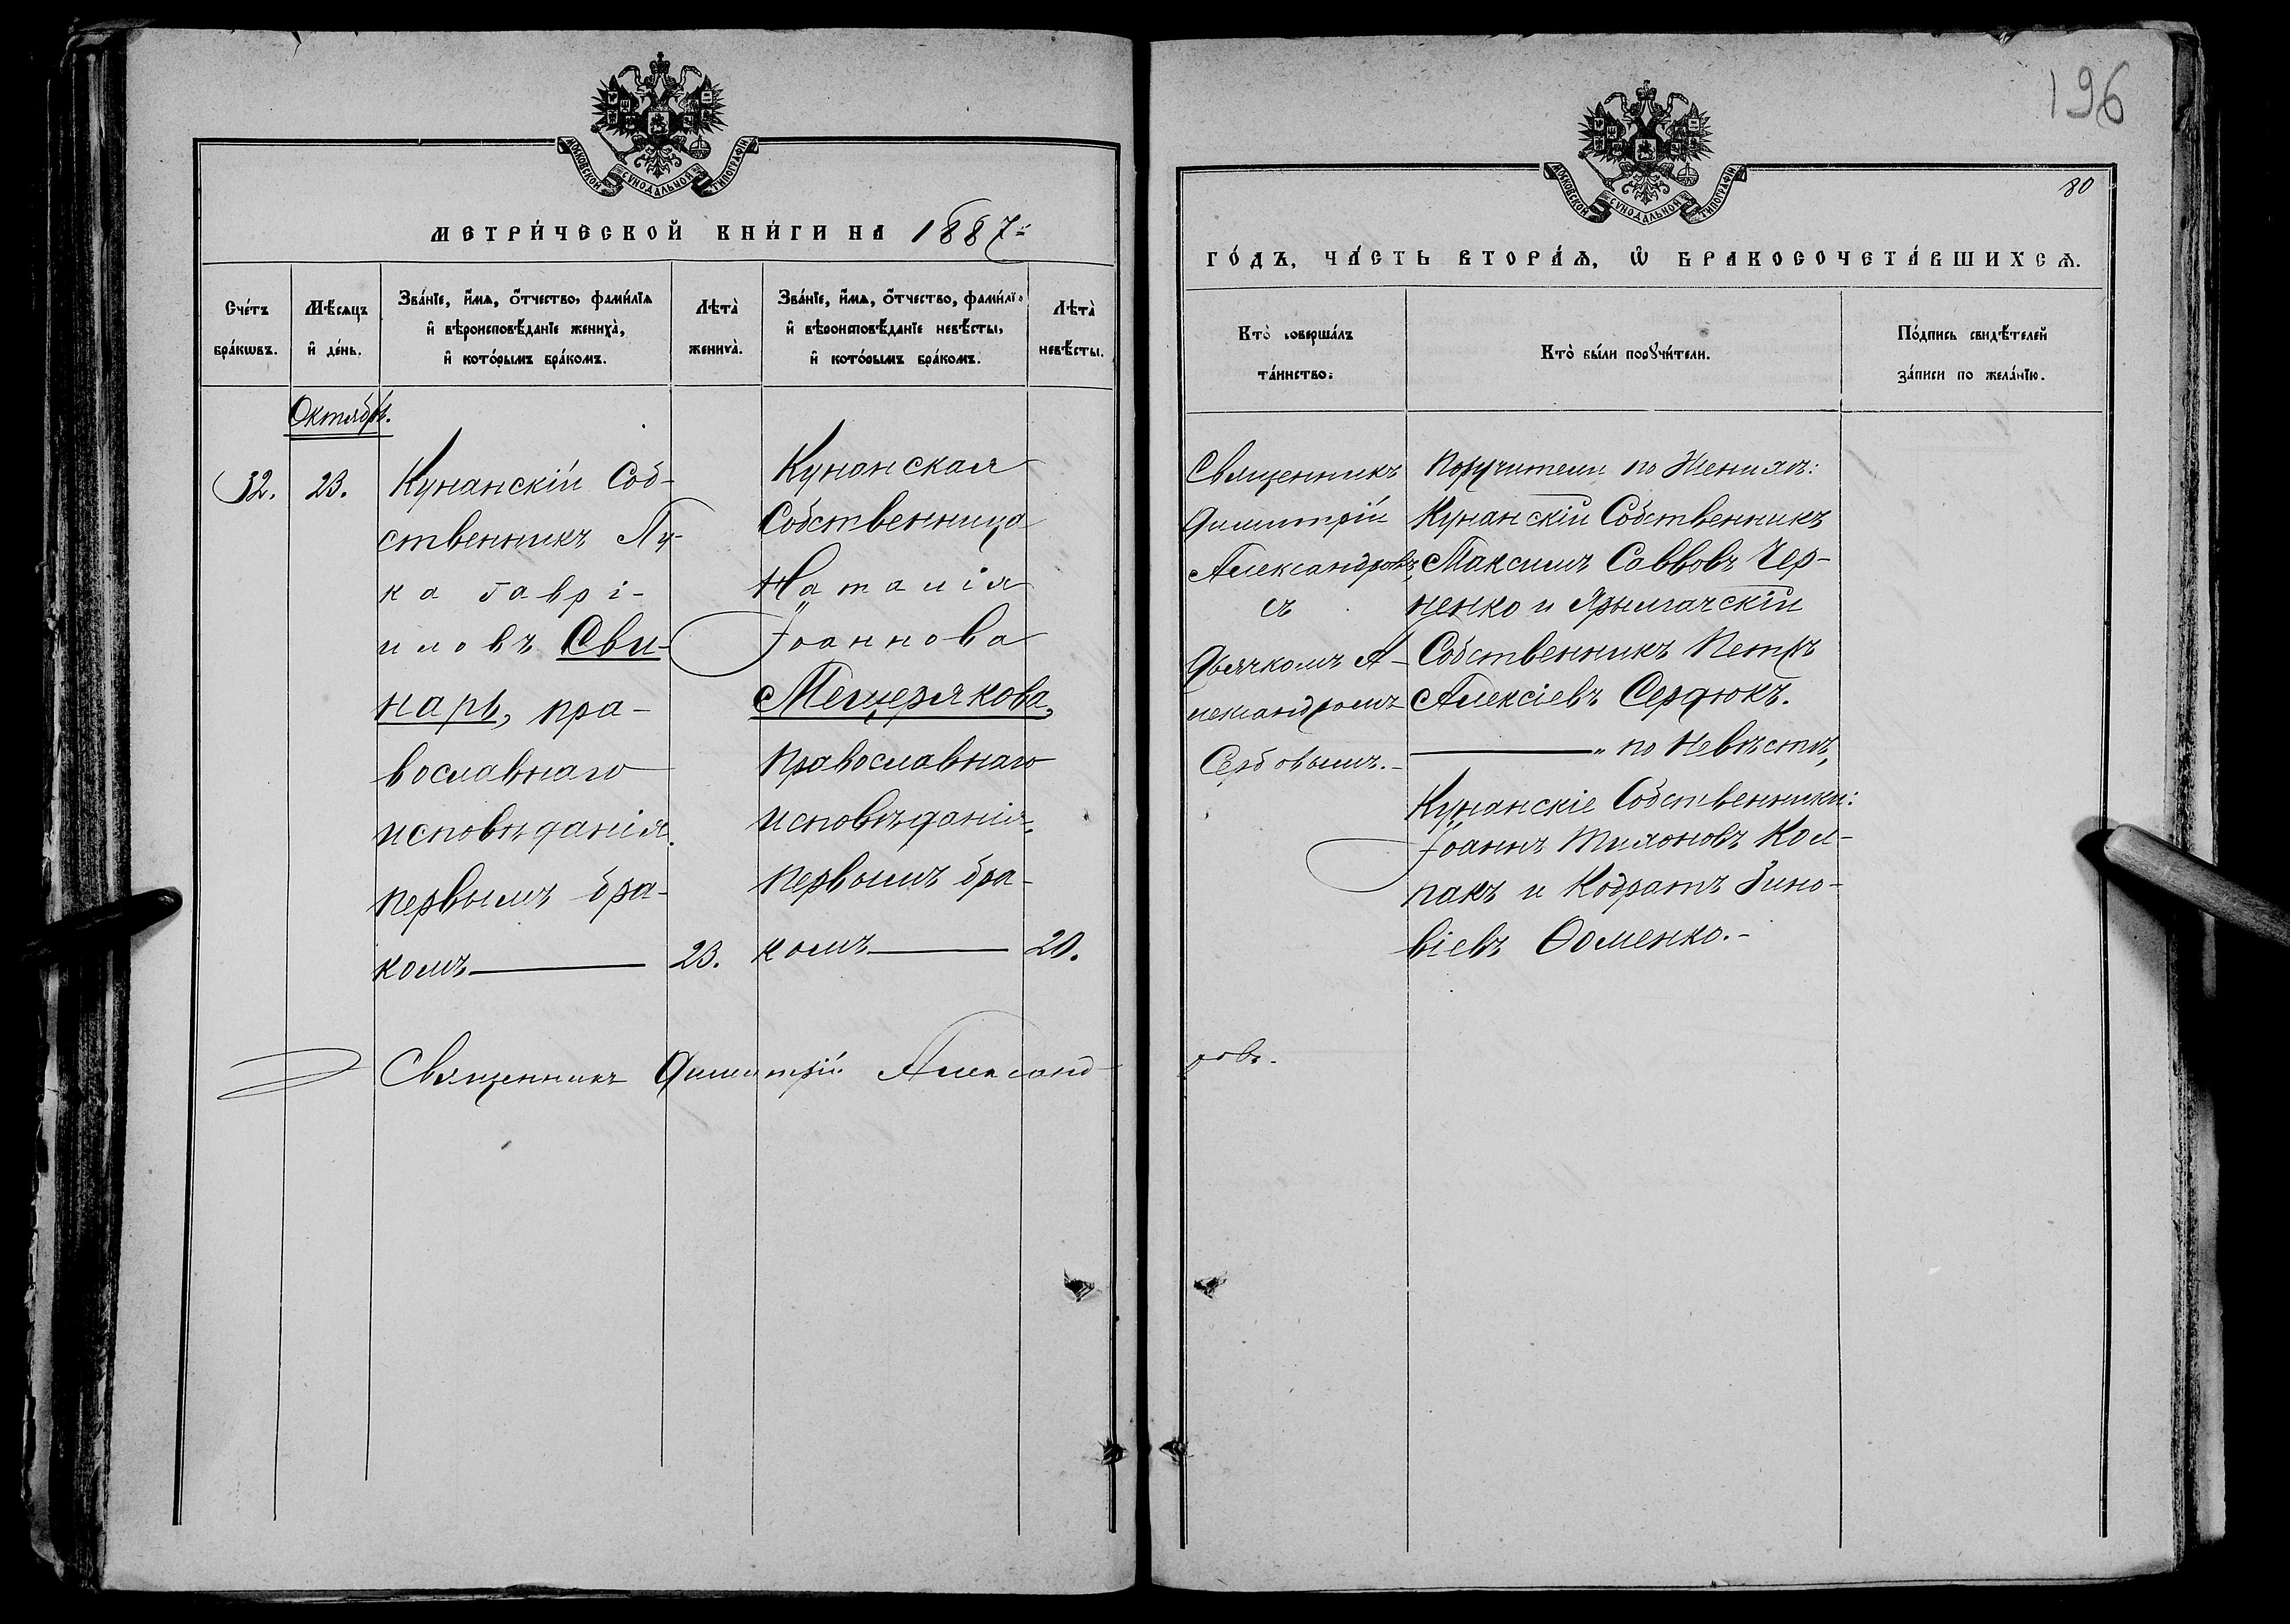 196
80
МОСКОВСКОЙ СѴНОДАЛЬНОЙ ТИПОГРАФІИ
МЕТРИ́ЧЕСКОЙ КНИ́ГИ НА 1887
МОСКОВСКОЙ СѴНОДАЛЬНОЙ ТИПОГРАФІИ
ГО́ДЪ, ЧА́СТЬ ВТОРА́Ѧ, Ѡ҆ БРАКОСОЧЕТА́ВШИХСѦ.
Сче́тъ
бра́кѡвъ.
Мѣ́сѧцъ
и҆ де́нь.
Зва́нїе, и҆́мѧ, ѻ҆́тчество, фами́лїѧ
и҆ вѣроисповѣ́данїе жениха̀,
и҆ кото́рымъ бра́комъ.
Лѣта̀
жениха̀.
Зва́нїе, и҆́мѧ, ѻ҆́тчество, фами́лїѧ
и҆ вѣроисповѣ́данїе невѣ́сты,
и҆ кото́рымъ бра́комъ.
Лѣта̀
невѣ́сты.
Кто̀ соверша́лъ
та́инство.
Кто̀ бы́ли порꙋчи́тели.
По́дпись свидѣ́телей
за́писи по жела́нїю.
Октябрь.
32.
23.
Кунанскій Соб-
ственникъ Лу-
ка Гаврі-
иловъ Сви-
нарь, пра-
вославнаго
исповѣданія.
первымъ бра-
комъ
23.
Кунанская
Собственница
Наталія
Іоаннова
Мещерякова,
православнаго
исповѣданія,
первымъ бра-
комъ
20.
Священникъ
Димитрій
Александровъ
съ
Дьячкомъ А-
лександромъ
Сербовымъ.-
Поручители по Женихѣ:
Кунанскій Собственникъ
Максимъ Саввовъ Чер-
ненко и Ярымачскій
Собственникъ Петръ
Алексіевъ Сердюкъ.
" по Невѣстѣ,
Кунанскіе Собственники:
Іоаннъ Тихоновъ Кол-
пакъ и Кодратъ Зино-
віевъ Ѳоменко.-
Священникъ Димитрій Александ-
ровъ.